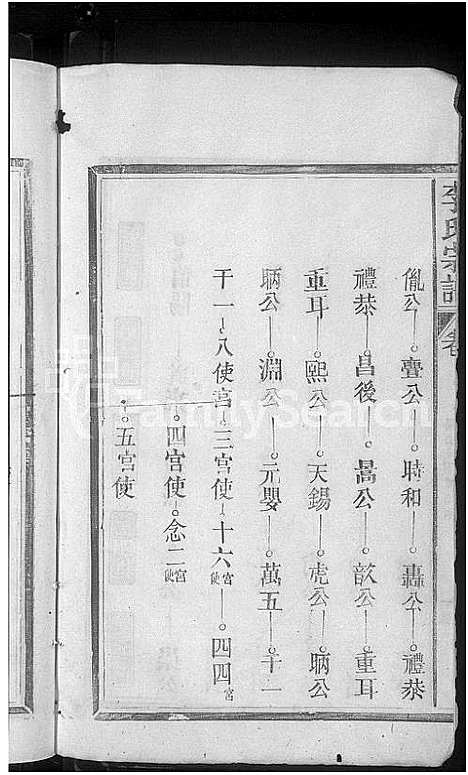 李氏宗譜 卷
胤公 亶公 時和 轟公 禮恭
禮恭 昌後 暠公 歆公 重耳
重耳 熙公 天錫 虎公 昞公
昞公 淵公 元嬰 萬五 千一
千一 八使宫 三宫使 十六宫使 四四宫
四宫使 念二宫使
五宫使
FamilySearch